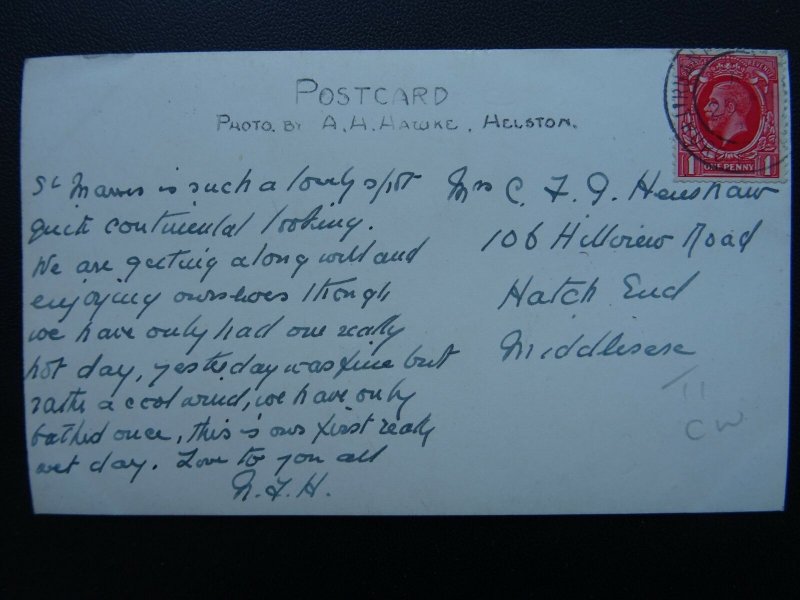 POSTCARD
PHOTO. BY A. H. HAWKE, HELSTON.
St Mawes is such a lovely spot
quite continental looking.
We are getting along well and
enjoying ourselves though
we have only had one really
hot day, yesterday was fine but
rather a cool wind, we have only
bathed once, this is our first really
wet day. Love to you all
N.F.H.
Mrs C. F. G. Henshaw
106 Hillview Road
Hatch End
Middlesex
11
CW
1 ONE PENNY 1